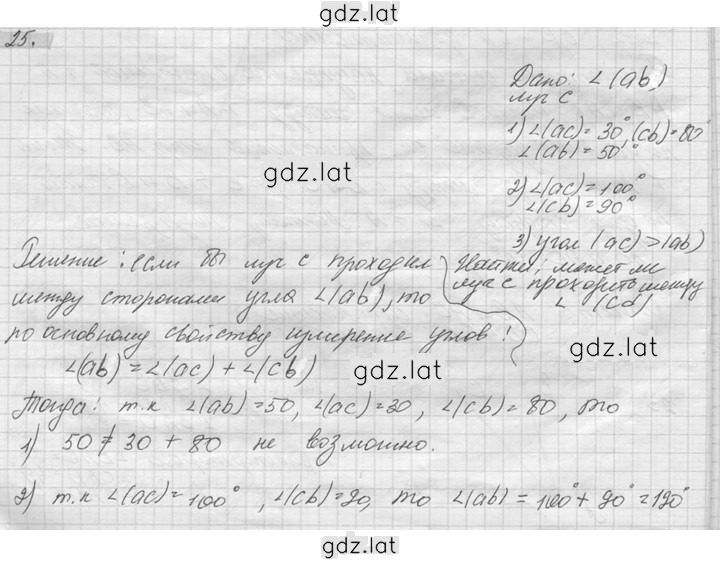 gdz.lat
25.
Дано: ∠(ab)
луч c
1) ∠(ac) = 30° (cb) = 80°
∠(ab) = 50°
gdz.lat
2) ∠(ac) = 100°
∠(cb) = 90°
3) угол (ac) > (ab)
Решение: если бы луч c проходил
между сторонами угла ∠(ab), то
по основному свойству измерение углов!
∠(ab) = ∠(ac) + ∠(cb)
Найти: может ли
луч c проходить между
∠ (cd)
gdz.lat
gdz.lat
Тогда: т.к ∠(ab) = 50, ∠(ac) = 30, ∠(cb) = 80, то
1) 50 ≠ 30 + 80 не возможно.
2) т.к ∠(ac) = 100°, ∠(cb) = 90, то ∠(ab) = 100° + 90° = 190°
gdz.lat